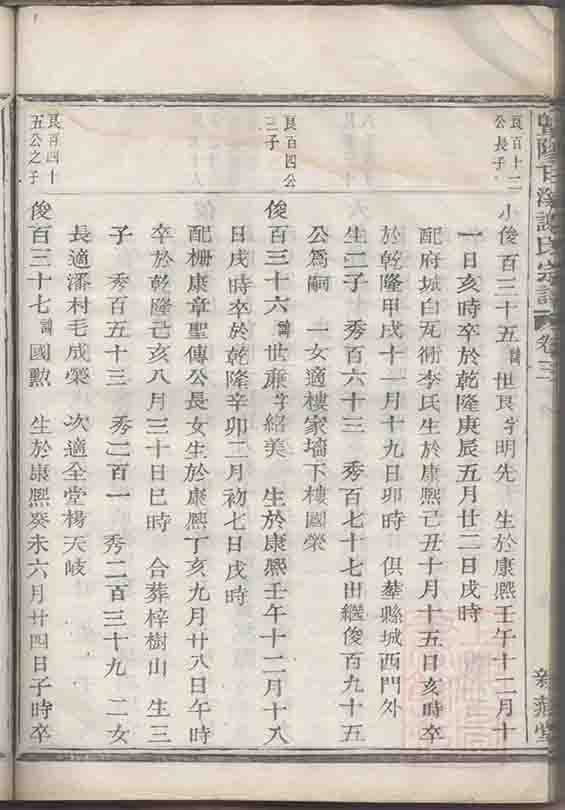 暨陽 謝氏宗譜 卷三
良百十二
公長子
小俊百三十五諱世良字明先 生於康熙壬午十二月十
一日亥時卒於乾隆庚辰五月廿二日戌時
配府城白瓦衖李氏生於康熙己丑十月十五日亥時卒
於乾隆甲戌十一月十九日卯時 俱塟縣城西門外
生二子 秀百六十三 秀百七十七出繼俊百九十五
公爲嗣 一女適樓家墻下樓國榮
良百四公
三子
俊百三十六諱世廉字紹美 生於康熙壬午十二月十八
日戌時卒於乾隆辛卯二月初七日戌時
配柵康章聖傳公長女生於康熙丁亥九月廿八日午時
卒於乾隆己亥八月三十日巳時 合葬梓樹山 生三
子 秀百五十三 秀二百一 秀二百三十九 二女
長適潘村毛成榮 次適全堂楊天岐
良百四十
五公之子
俊百三十七諱國勲 生於康熙癸未六月廿四日子時卒